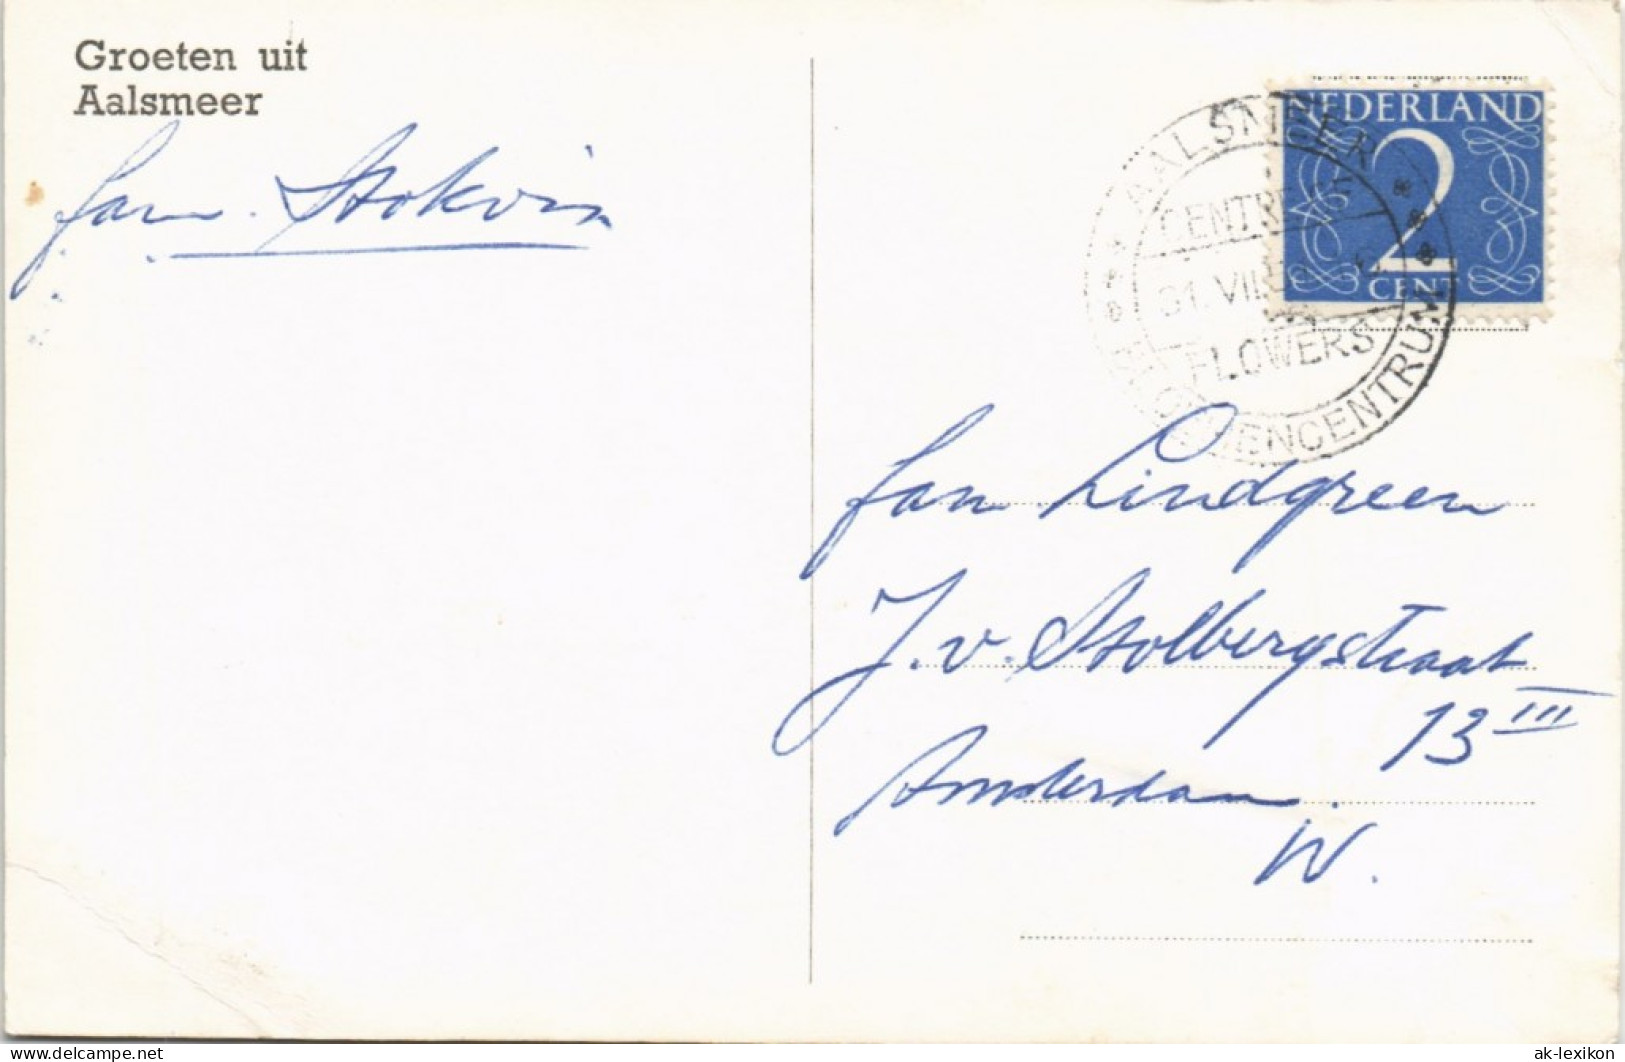 Groeten uit
Aalsmeer
fam. Stokvis
NEDERLAND
2
CENT
AALSMEER
CENTRE OF
31. VII.
FLOWERS
BLOEMENCENTRUM
fam Lindgreen
J. v. Stolbergstraat
13 III
Amsterdam.
W.
ak-lexikon
www.delcampe.net